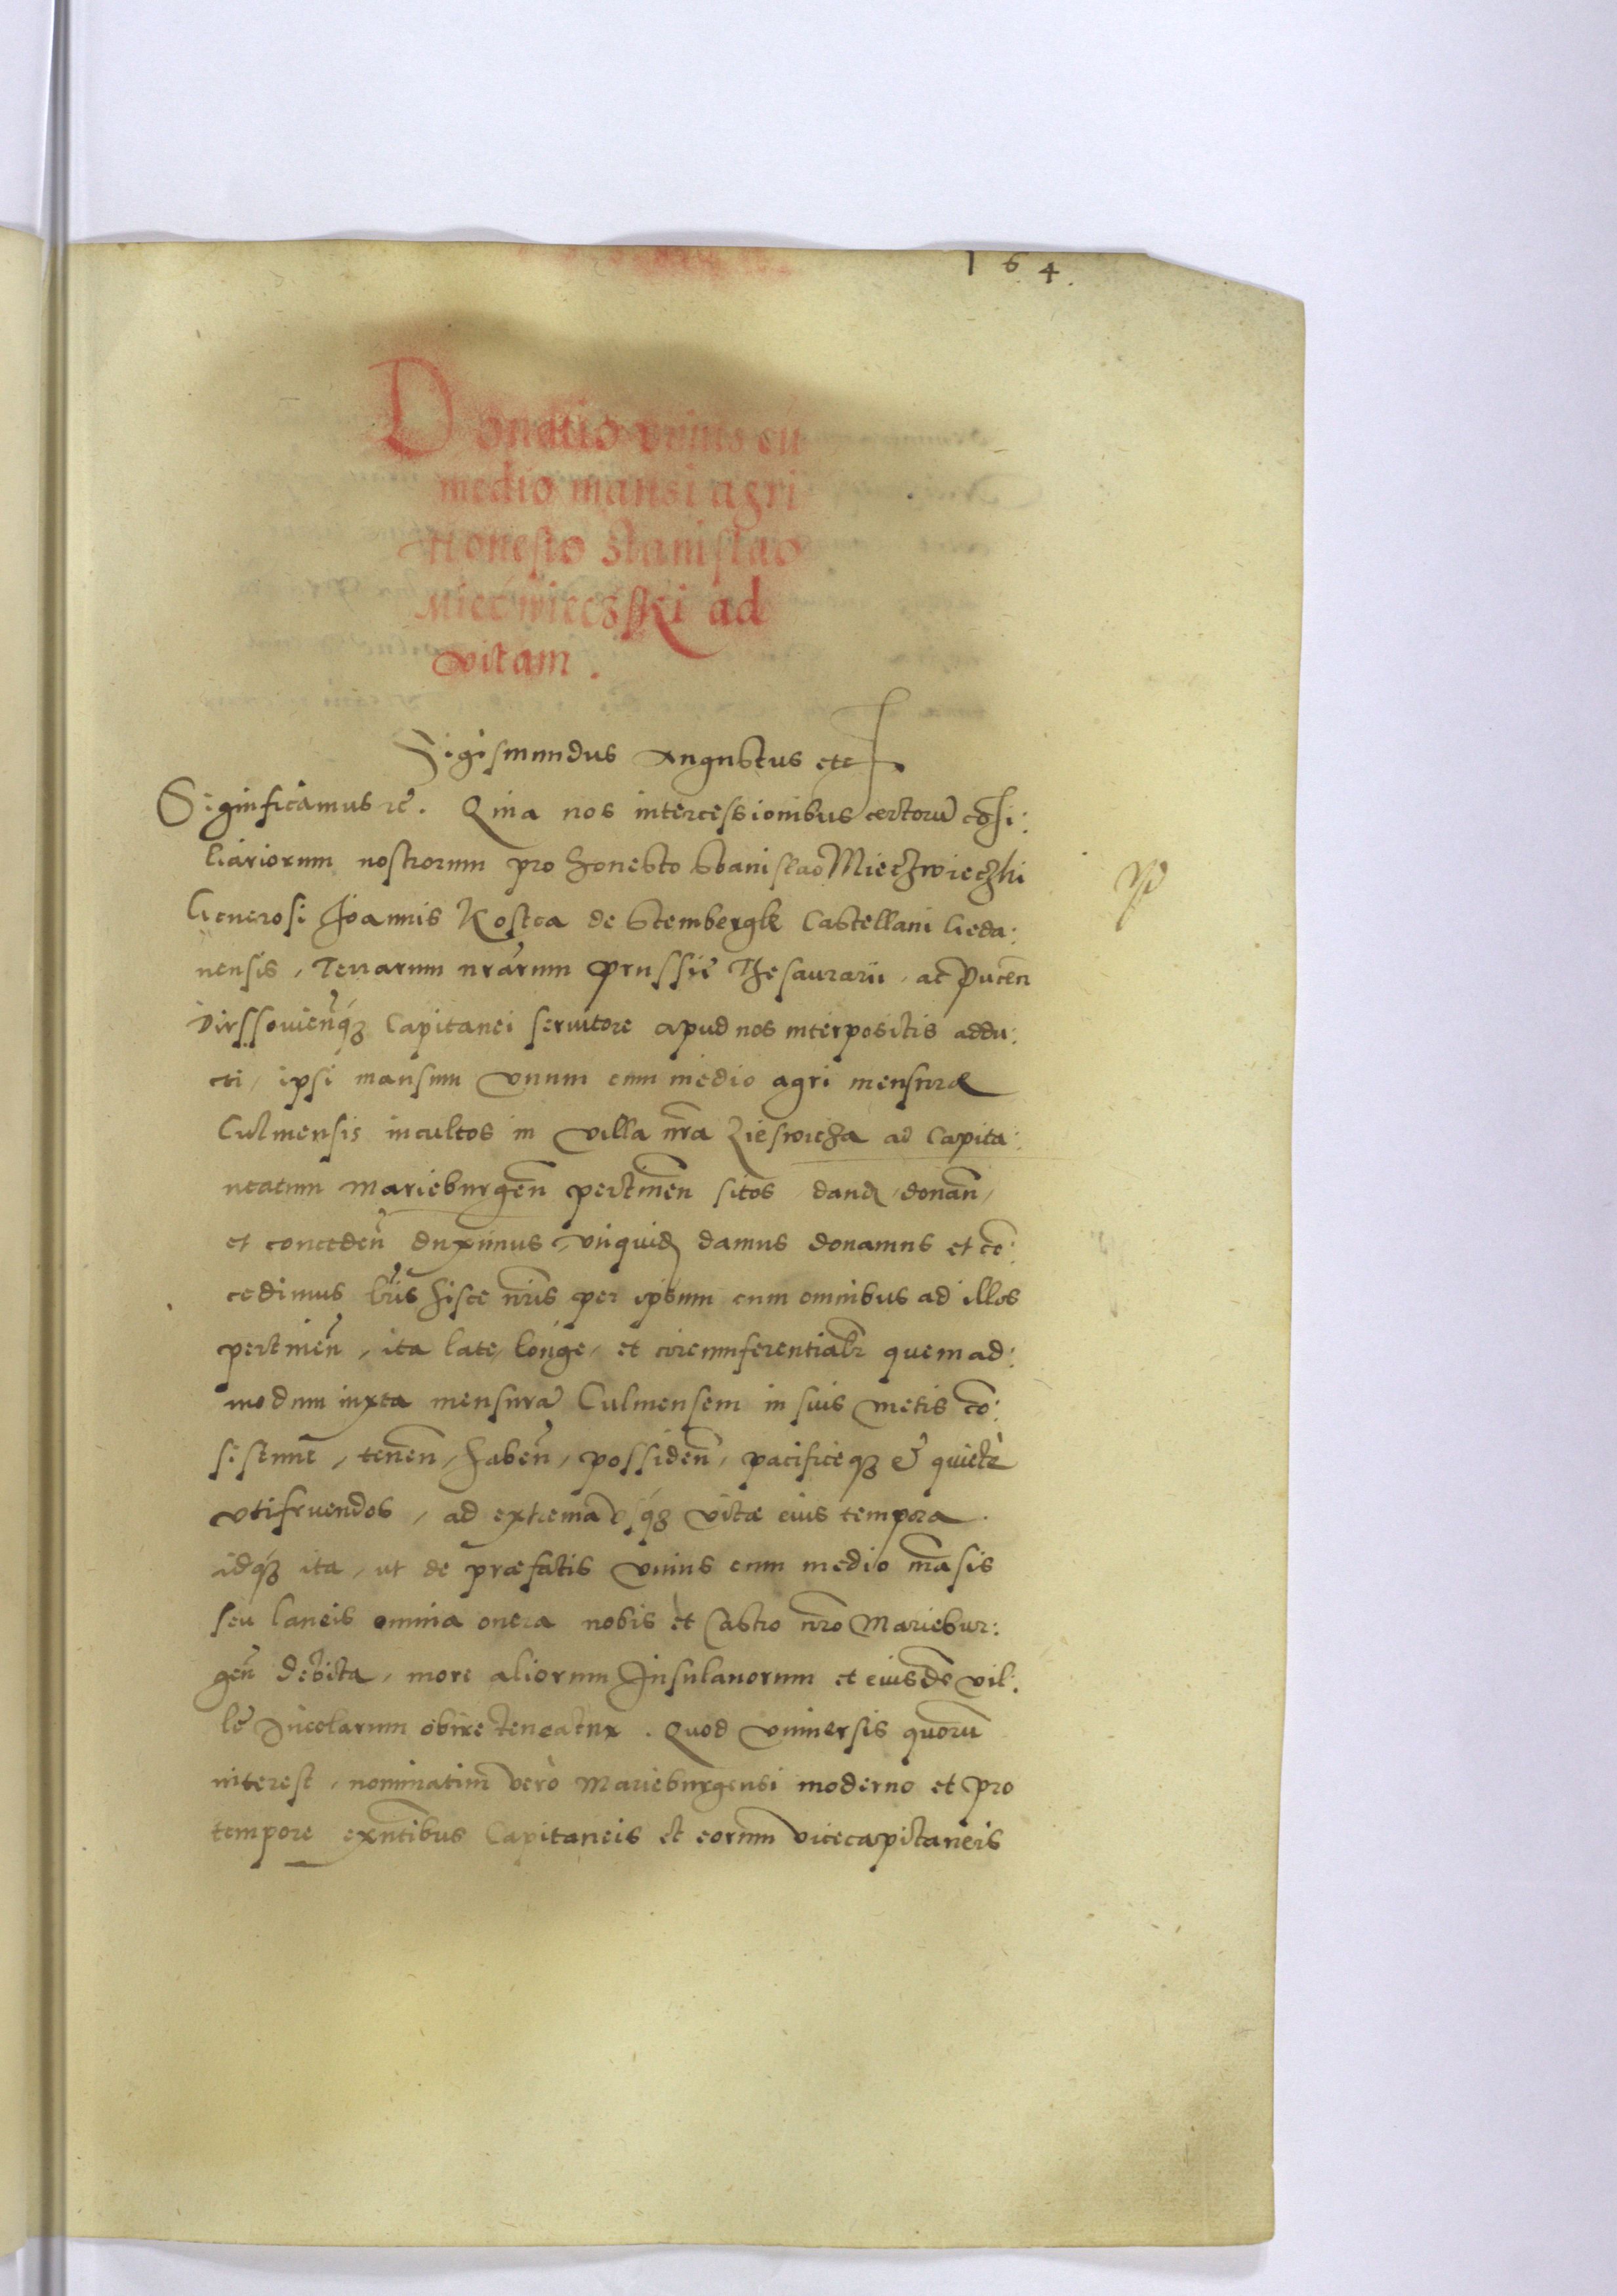 164.
Donatio vnius cū
medio mansi agri
Honesto Stanislao
Miecwieczski ad
vitam.
Sigismundus Augustus etc
Significamus rc̄. Quia nos intercessionibus certorū cōsi:
liariorum nostrorum pro honesto Stanislao Mieczwieczki
Generosi Joannis Kostca de Stembergk Castellani Geda:
nensis, Terrarum nrārum Prussię Thesaurarii, ac Pucen̄
Dirssouien̄q₃ Capitanei seruitore apud nos interpositis addu:
cti, ipsi mansum vnum cum medio agri mensuræ
Culmensis incultos in villa nr̄a Zieswicza ad Capita:
neatum Marieburgen̄ pertinen̄ sitos, dand, donan̄,
et conceden̄ duximus, vtiquid damus donamus et cō:
cedimus lr̄is hisce nr̄is per ipsum cum omnibus ad illos
pertinen̄, ita late, longe, et circumferentialr̄ quemad:
modum iuxta mensurā Culmensem in suis metis cō:
sistunt, tenen̄, haben̄, possiden̄, pacificeq₃ et quietè
vtifruendos, ad extrema vsq₃ vitæ eius tempora.
idq₃ ita, ut de præfatis vnius cum medio māsis
seu laneis omnia onera nobis et Castro nr̄o Mariebur:
gen̄ debita, more aliorum Insulanorum et eiusdē vil:
lę Incolarum obire teneatur. Quod vniuersis quorū
interest, nominatim verò Marieburgensi moderno et pro
tempore exn̄tibus Capitaneis et eorum vicecapitaneis